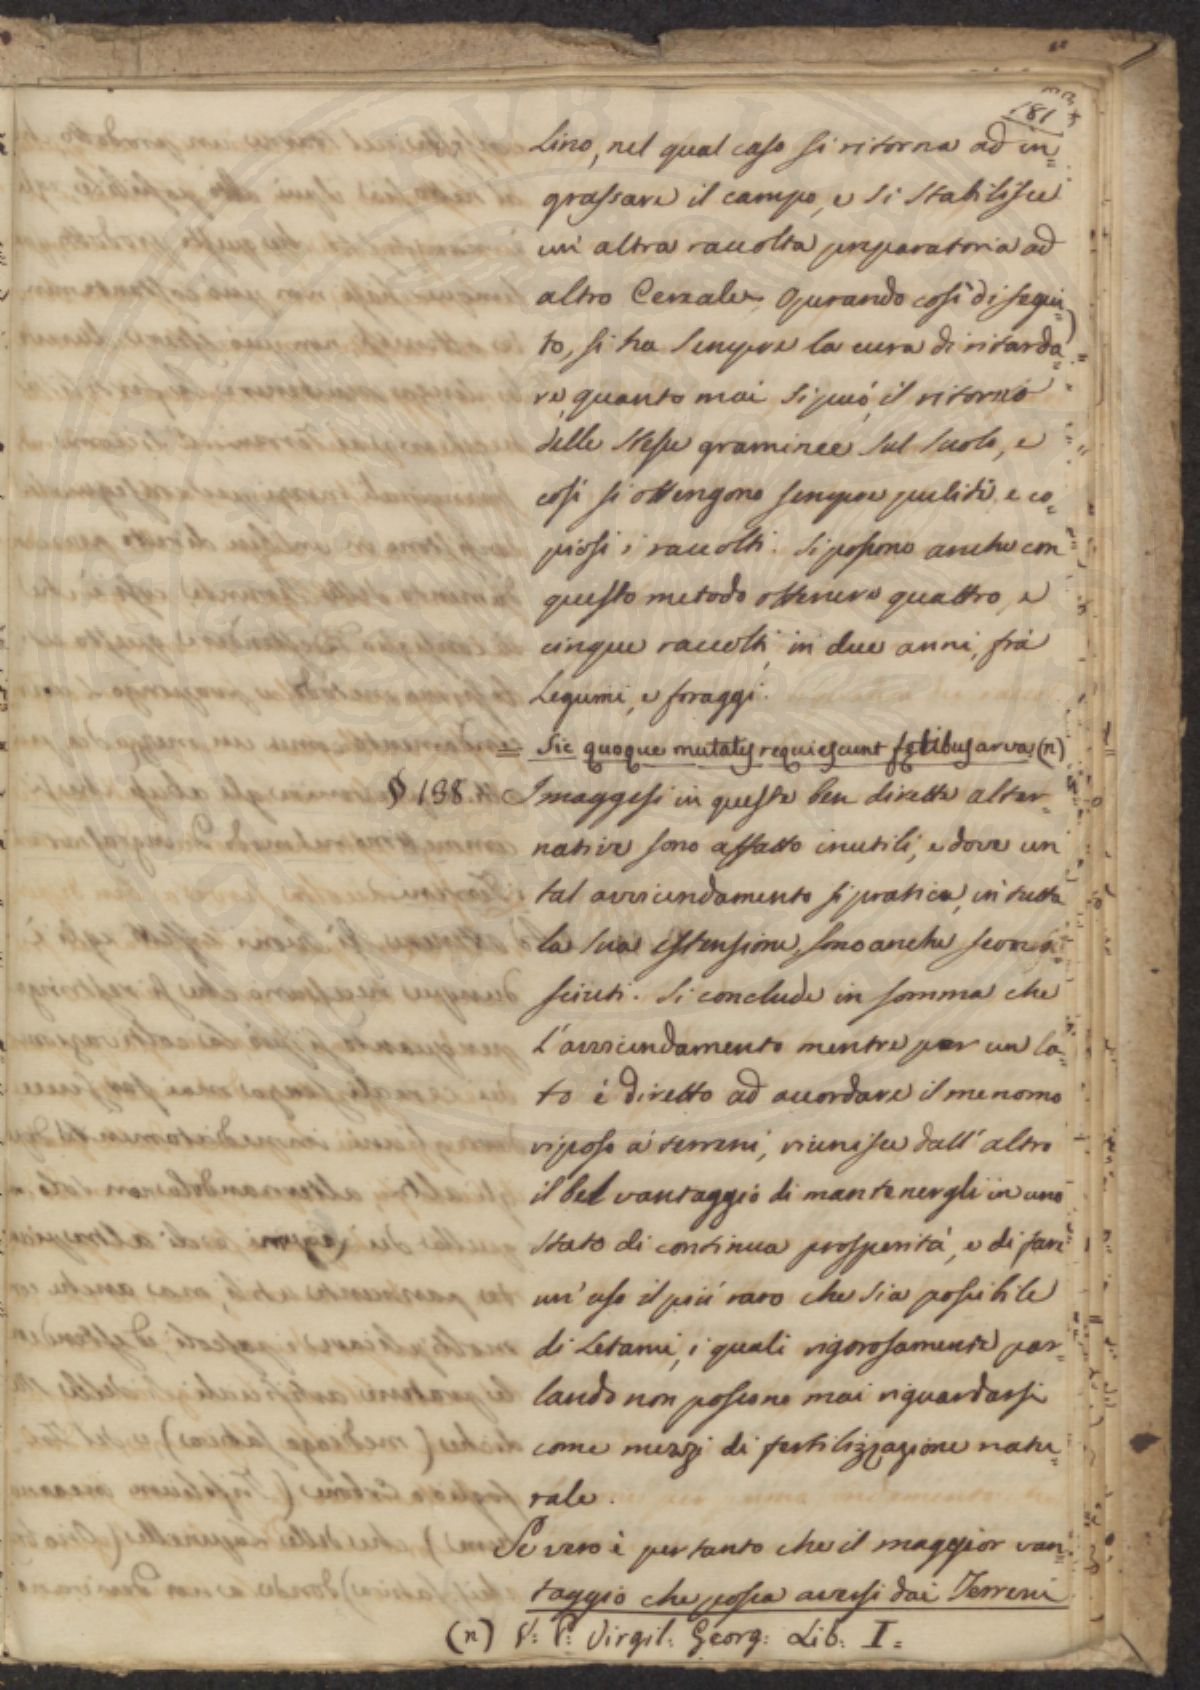 181
Lino, nel qual caso si ritorna ad in=
grassare il campo, e si stabilisce
un'altra raccolta preparatoria ad
altro Cereale. Operando così di segui=
to, si ha sempre la cura di ritarda=
re, quanto mai si può, il ritorno
delle stesse graminee sul suolo, e
così si ottengono sempre puliti, e co=
piosi i raccolti. Si possono anche con
questo metodo ottenere quattro, e
cinque raccolti, in due anni, frà
Legumi, e foraggi.
= Sic quoque mutatis requiescunt fętibus arva (n)
§ 138. I maggesi in queste ben dirette alter=
native sono affatto inutili, e dove un
tal avvicendamento si pratica, in tutta
la sua estensione, sono anche scono=
sciuti. Si conclude in somma che
l'avvicendamento mentre per un la=
to è diretto ad accordare il menomo
riposo a' terreni, riunisce dall'altro
il bel vantaggio di mantenergli in uno
stato di continua prosperità, e di fare
un'uso il più raro che sia possibile
di Letami, i quali rigorosamente par=
lando non possono mai riguardarsi
come mezzi di fertilizzazione natu=
rale.
Se vero è pertanto che il maggior van=
taggio che possa aversi dai Terreni
(n) V: P: Virgil: Georg: Lib: I =